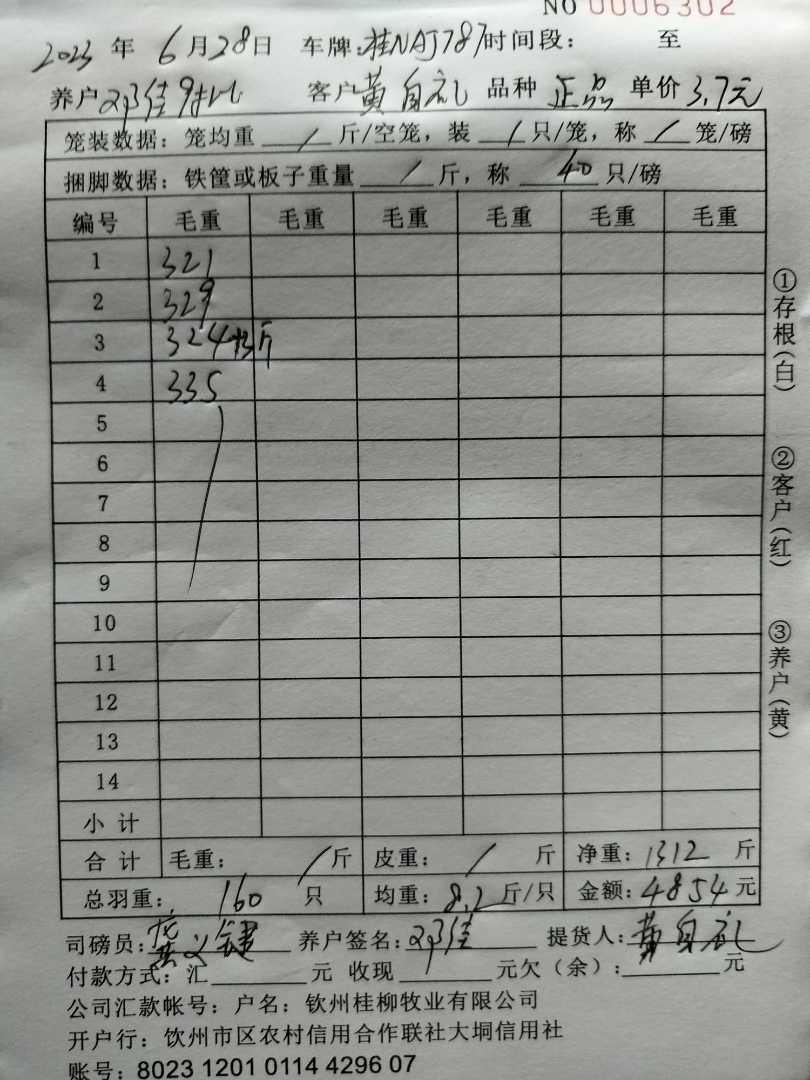 NO 0006302
2023 年 6月28日 车牌:桂NAJ787时间段: 至
养户邓佳 客户黄自礼 品种 正品 单价3.7元
笼装数据: 笼均重 / 斤/空笼, 装 / 只/笼, 称 / 笼/磅
捆脚数据: 铁筐或板子重量 / 斤, 称 40 只/磅
编号 毛重 毛重 毛重 毛重 毛重 毛重
1 321
2 329
3 324+3斤
4 335
5
6
7
8
9
10
11
12
13
14
小计
合计 毛重: / 斤 皮重: / 斤 净重: 1312 斤
总羽重: 160 只 均重: 8.2 斤/只 金额: 4854 元
司磅员: 龚义键 养户签名: 邓佳 提货人: 黄自礼
付款方式: 汇 元 收现 元欠(余): 元
公司汇款帐号: 户名: 钦州桂柳牧业有限公司
开户行: 饮州市区农村信用合作联社大垌信用社
账号: 8023 1201 0114 4296 07
①存根(白)
②客户(红)
③养户(黄)